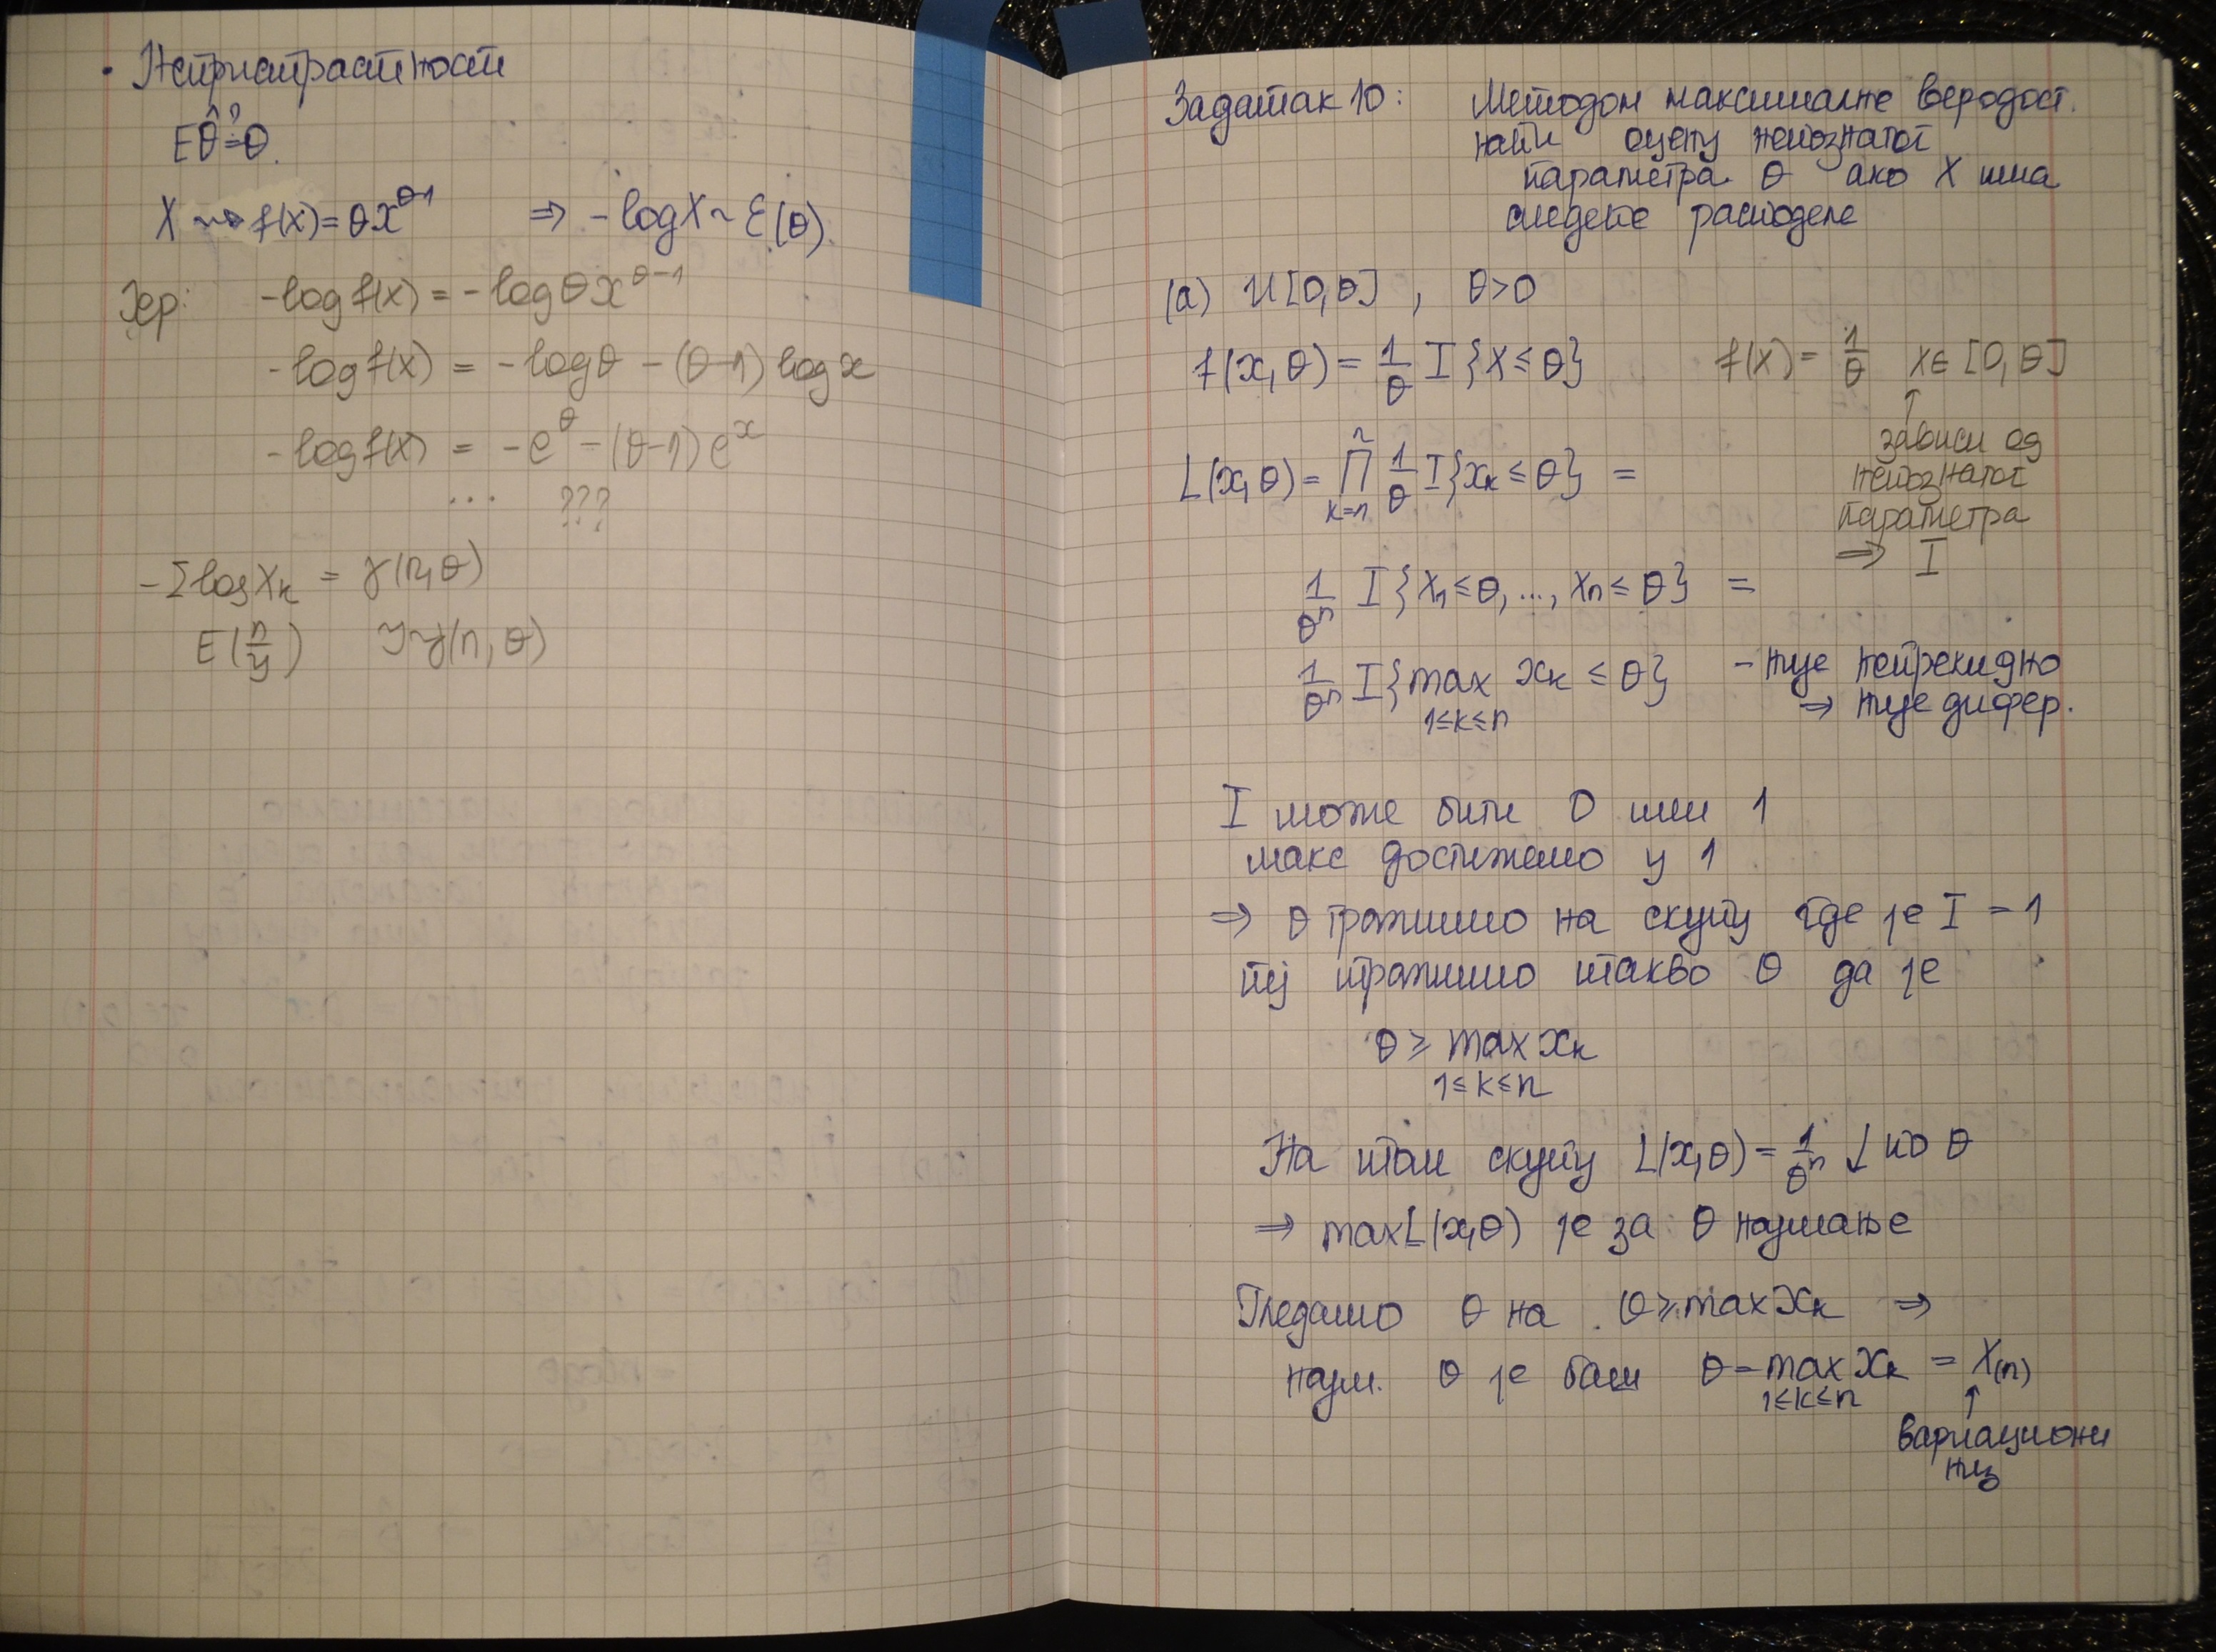 • Непристрастност
Eθ̂ ?= θ.
X ~> f(x) = θx^{θ-1} ⇒ -logX ~ Ɛ(θ).
Јер: -log f(x) = -log θ x^{θ-1}
-log f(x) = -logθ - (θ-1) log x
-log f(x) = -e^θ - (θ-1) e^x
... ???
-Σ log X_k = γ(n,θ)
E(n/y) Y~γ(n, θ)
Задатак 10: Методом максималне веродост.
наћи оцену непознатог
параметра θ ако X има
следеће расподеле
(а) U[0,θ] , θ>0
f(x, θ) = 1/θ I{X ≤ θ} f(x) = 1/θ x∈[0, θ]
↑
зависи од
непознатог
параметра
⇒ I
L(x,θ) = ∏_{k=1}^{n} 1/θ I{x_k ≤ θ} =
1/θ^n I{X_1 ≤ θ, ..., X_n ≤ θ} =
1/θ^n I{max x_k ≤ θ} - није непрекидно
1≤k≤n ⇒ није дифер.
I може бити 0 или 1
макс достижемо у 1
⇒ θ тражимо на скупу где је I = 1
тј тражимо такво θ да је
θ ≥ max x_k
1≤k≤n
На том скупу L(x,θ) = 1/θ^n ↓ по θ
⇒ maxL(x,θ) је за θ најмање
Гледамо θ на θ ≥ max X_k ⇒
најм. θ је баш θ = max X_k = X_(n)
1≤k≤n ↑
варијациони
низ